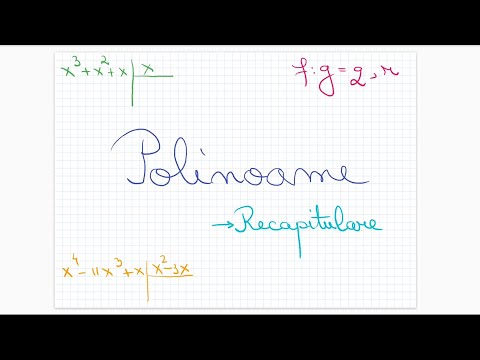 x³+x²+x | x
f:g=q,r
Polinoame
→Recapitulare
x⁴-11x³+x | x²-3x